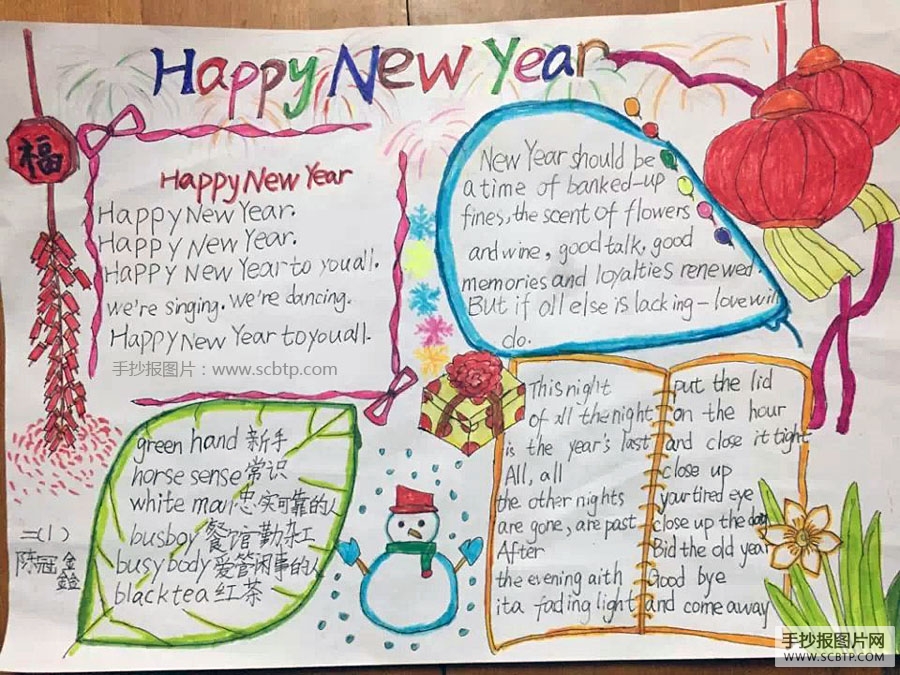 Happy New Year
福
Happy New Year
Happy New Year.
Happy New Year.
Happy New Year to you all.
we're singing. we're dancing.
Happy New Year to you all.
手抄报图片：www.scbtp.com
New Year should be
a time of banked-up
fines, the scent of flowers
and wine, good talk, good
memories and loyalties renewed.
But if all else is lacking - love will
do.
green hand 新手
horse sense 常识
white man 忠实可靠的人
busboy 餐馆勤杂工
busybody 爱管闲事的人
black tea 红茶
二(1)
陈冠鑫
This night
of all the night
is the year's last
All, all
the other nights
are gone, are past
After
the evening aith
ita fading light
put the lid
on the hour
and close it tight
close up
your tired eye
close up the day
Bid the old year
Good bye
and come away
手抄报图片网
WWW.SCBTP.COM